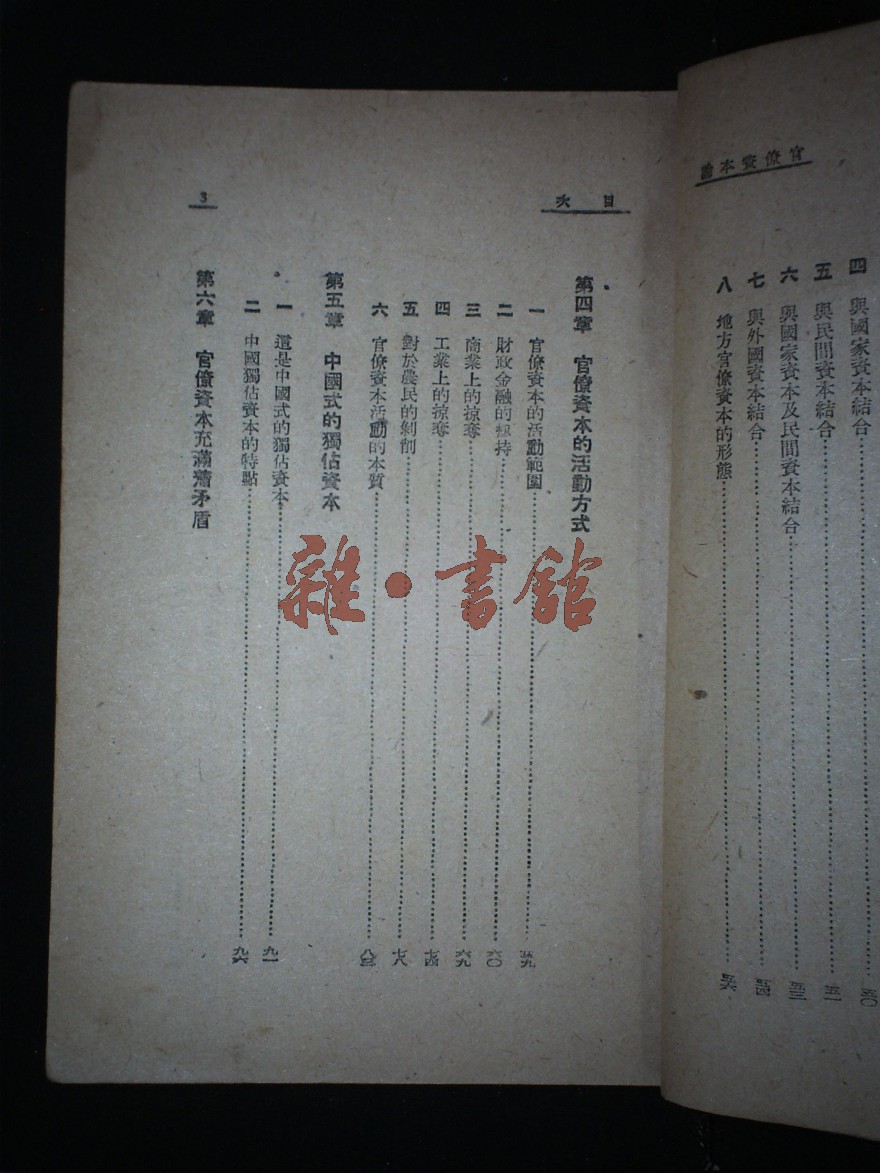 官僚資本論
四 與國家資本結合……五〇
五 與民間資本結合……五一
六 與國家資本及民間資本結合……五三
七 與外國資本結合……五四
八 地方官僚資本的形態……五六
目次
3
第四章 官僚資本的活動方式
一 官僚資本的活動範圍……五九
二 財政金融的把持……六〇
三 商業上的掠奪……六九
四 工業上的掠奪……七四
五 對於農民的剝削……七八
六 官僚資本活動的本質……八三
第五章 中國式的獨佔資本
一 這是中國式的獨佔資本……九一
二 中國獨佔資本的特點……九六
第六章 官僚資本充滿着矛盾
雜·書館